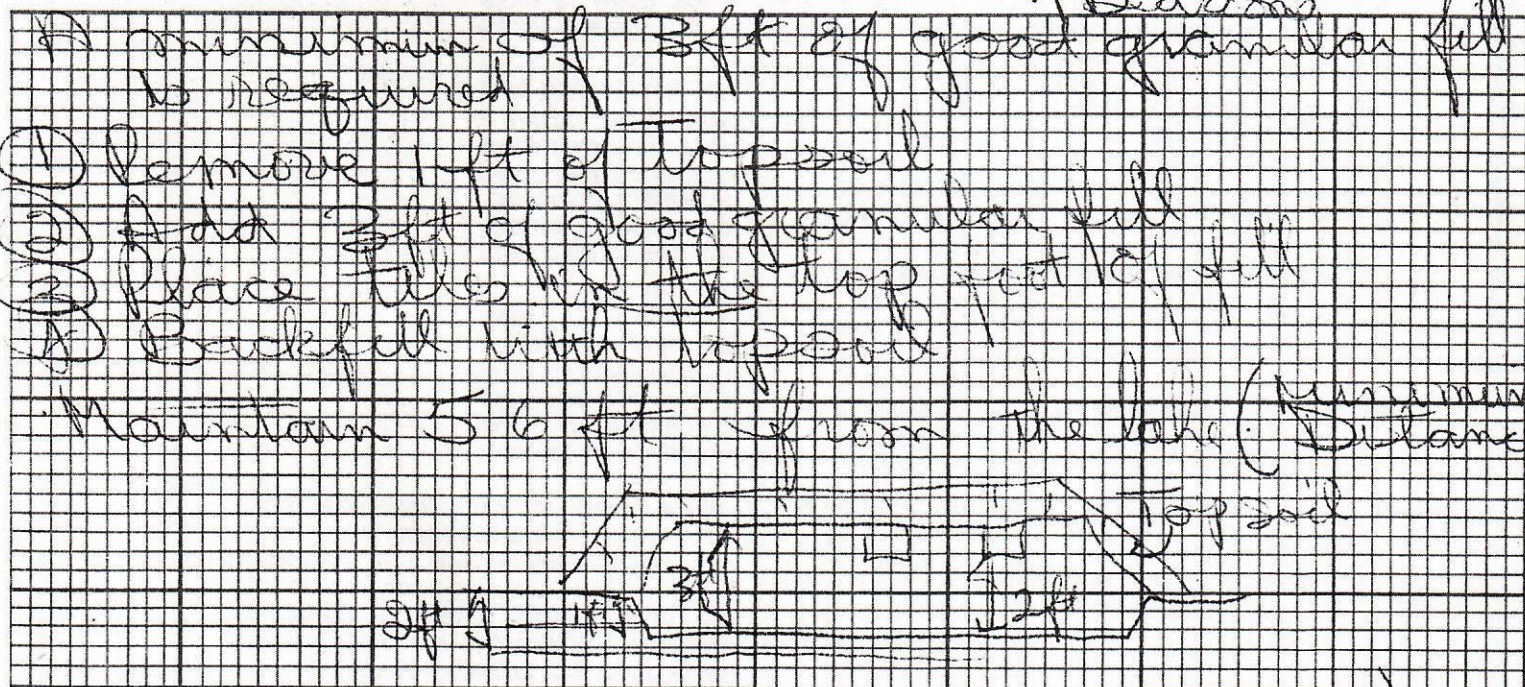 A minimum of 3ft of good granular fill
is required
① Remove 1ft of Topsoil
② Add 3ft of good granular fill
③ Place tiles in the top foot of fill
④ Backfill with topsoil
Maintain 56 ft from the lake (Minimum
Distanc
Topsoil
3ft
2ft
2ft 1ft